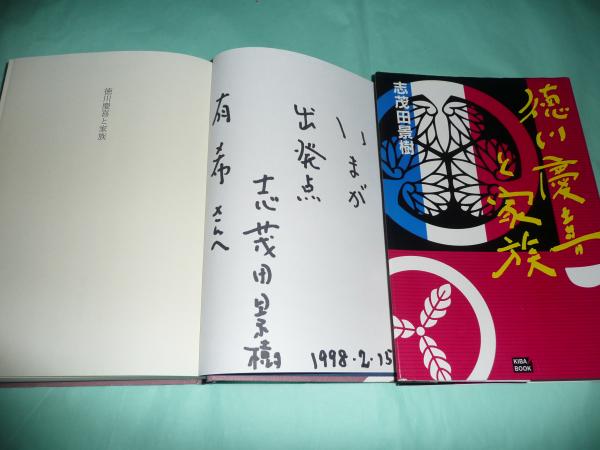 徳川慶喜と家族
いまが
出発点
志茂田景樹
有希さんへ
1998.2.15
志茂田景樹
徳川慶喜
と家族
KIBA
BOOK